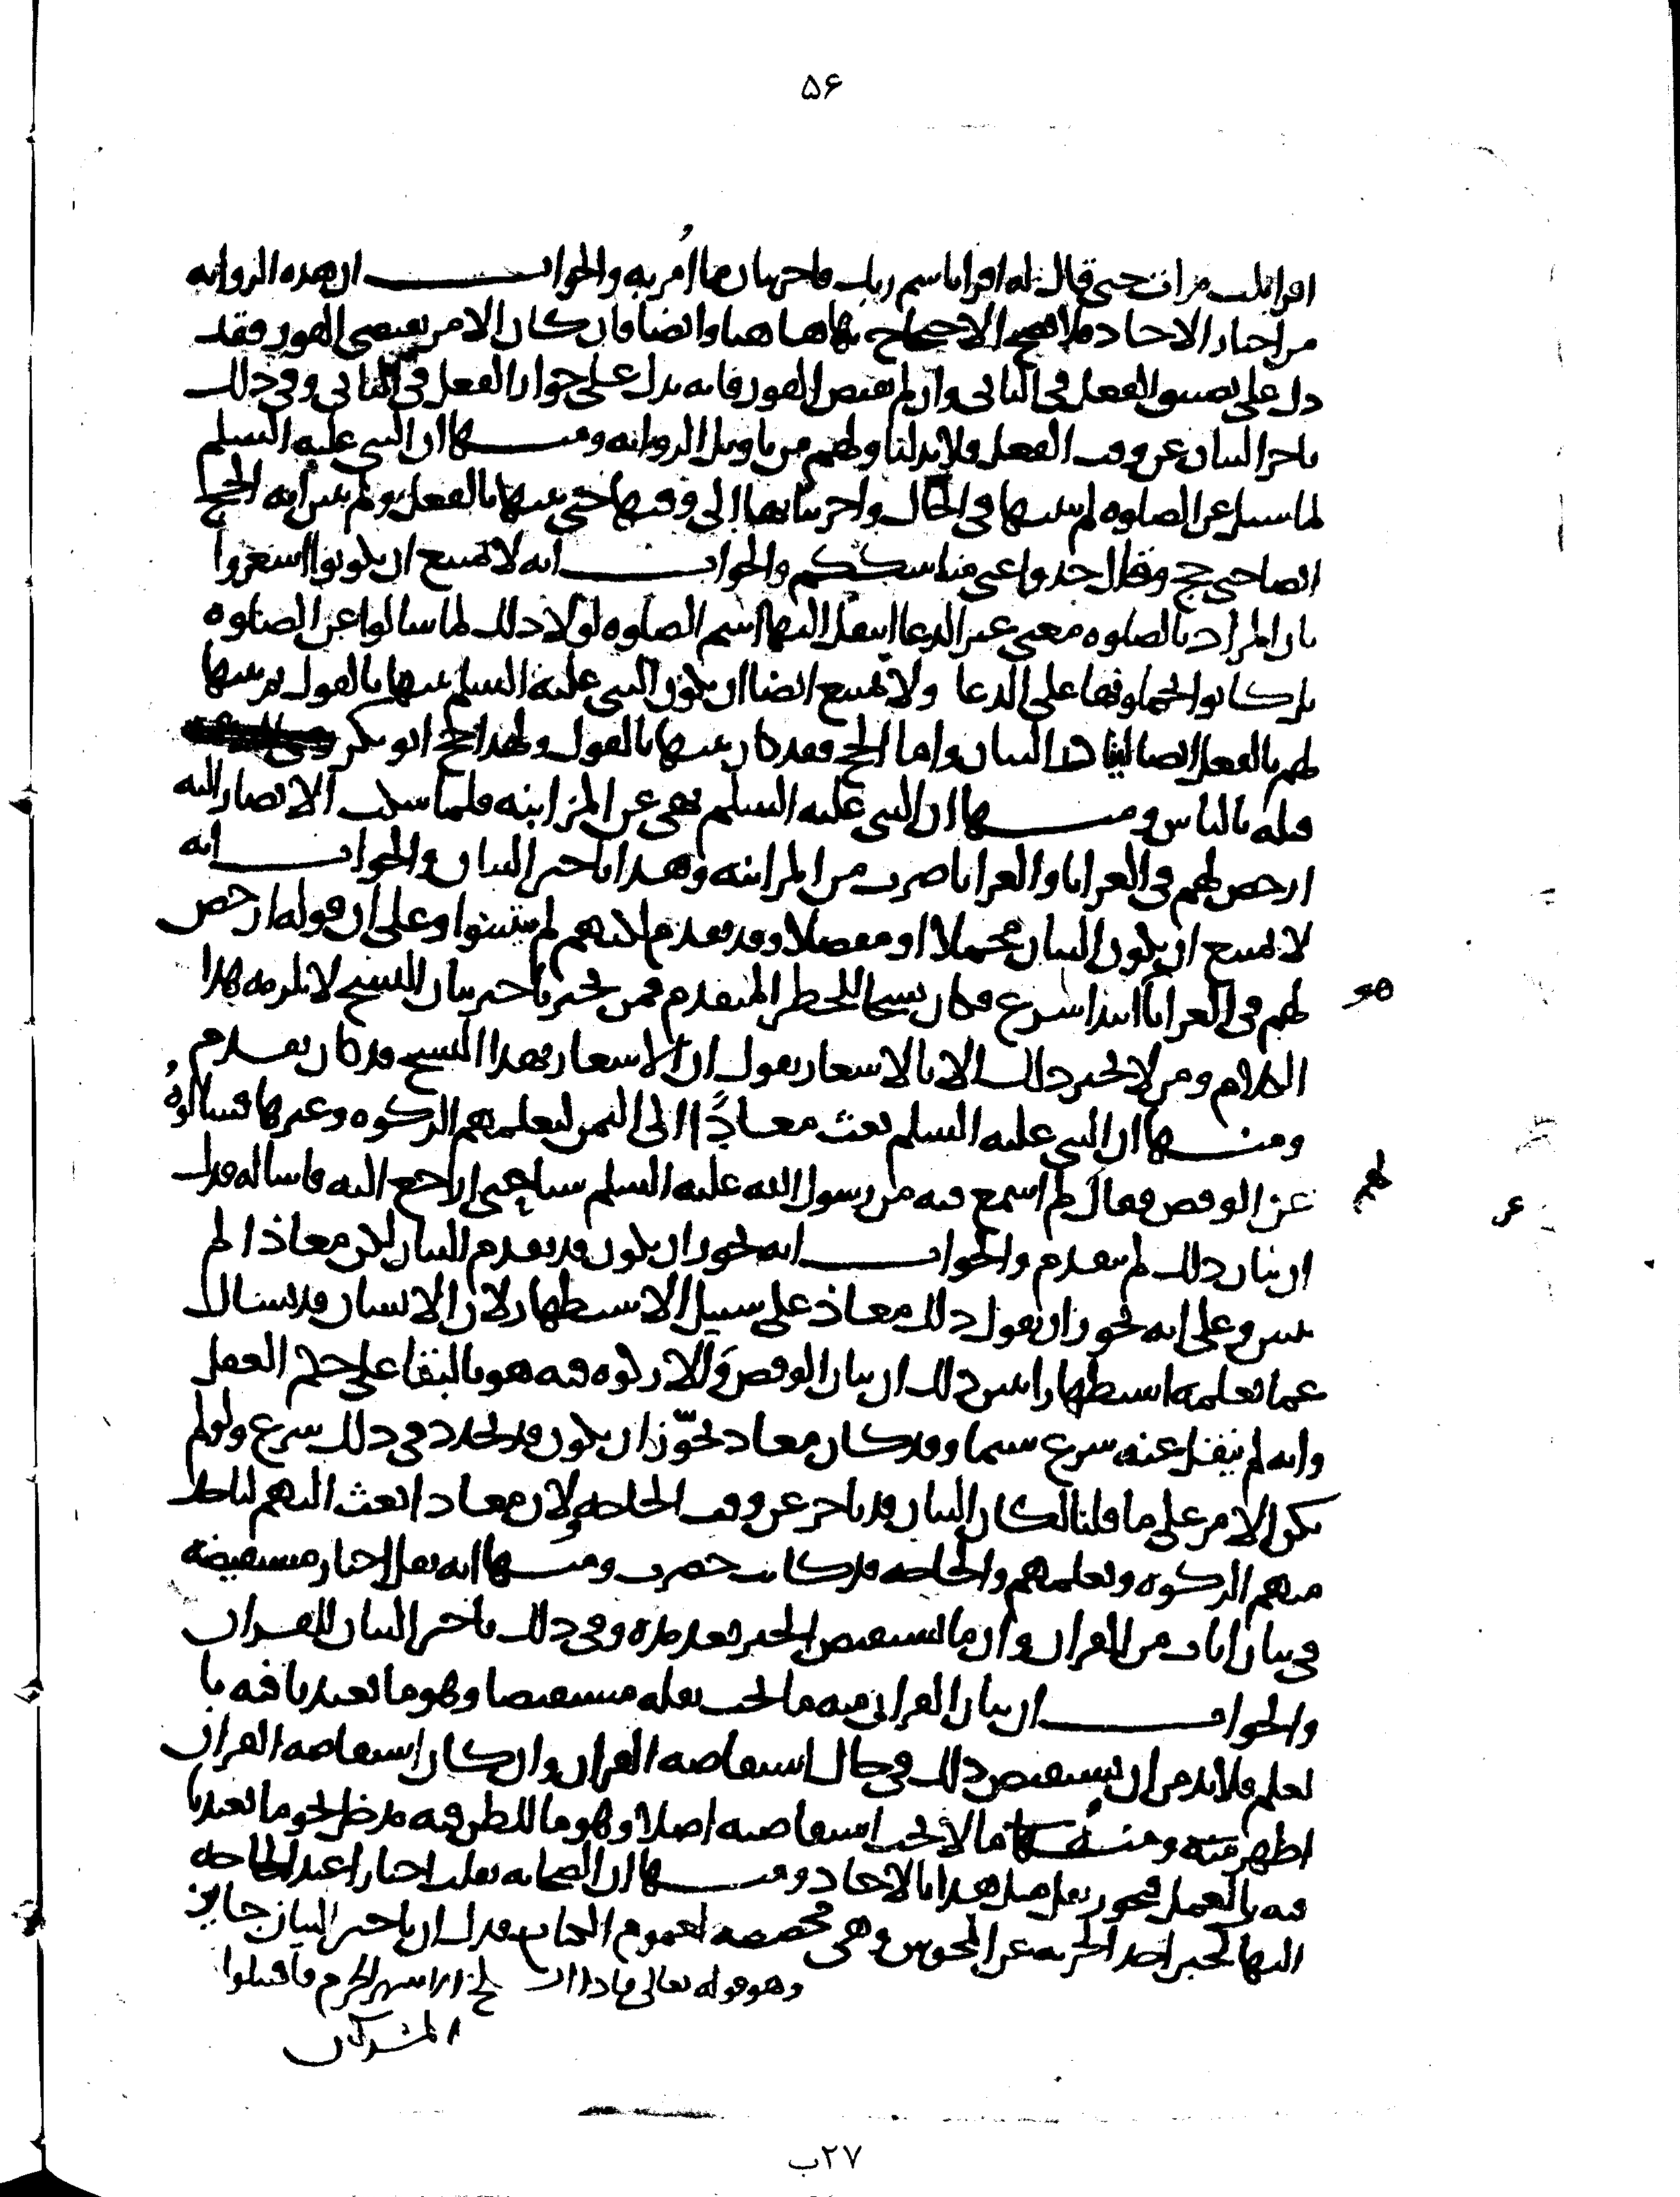 ۵۶
اقرا ثلث مرات حتى قال له اقرا باسم ربك فاخر بيان ما اُمر به والجواب ان هذه الرواية
من اخبار الاحاد فلا يصح الاحتجاج بها هاهنا وايضا فان كان الامر يقتضى الفور فقد
دل على تضييق الفعل فى الثانى وان لم يقتض الفور فانه يدل على جواز الفعل فى الثانى وفى ذلك
تاخر البيان عن وقت الفعل فلا بد لنا ولهم من تاويل الرواية ومنها ان النبى عليه السلم
لما سيل عن الصلوه لم يبينها فى الحال واخر بيانها الى وقتها حتى بينها بالفعل ولم يبين اية الحج
ايضا حتى حج وقال خذوا عنى مناسككم والجواب انه لا يمتنع ان يكونوا اشعروا
بان المراد بالصلوه معنى غير الدعا انتقل اليها اسم الصلوه لولا ذلك لما سالوا عن الصلوه
بل كانوا يحملونها على الدعا ولا يمتنع ايضا ان يكون النبى عليه السلم بينها بالقول ثم بينها
لهم بالفعل ايضا ليتاكد البيان واما الحج فقد كان بينها بالقول ولهذا حج ابو بكر
قبله بالناس ومنها ان النبى عليه السلم نهى عن المزابنه فلما شكت الانصار اليه
ارخص لهم فى العرايا والعرايا ضرب من المزابنه وهذا تاخير البيان والجواب انه
لا يمتنع ان يكون البيان مجملا او مفصلا وقد تقدم لكنهم لم يتبينوا وعلى ان قوله ارخص
لهم فى العرايا ابتدا شرع فكان نسخا للحظر المتقدم فمن يجيز تاخير بيان النسخ لا يلزمه هذا
هو
الكلام ومن لا يجيز ذلك الا بالاشعار يقول ان الاشعار بهذا النسخ قد كان تقدم
ومنها ان النبى عليه السلم بعث معاذًا الى اليمن ليعلمهم الزكوه وغيرها فسالوهُ
عن الوقص فقال لم اسمع فيه من رسول الله عليه السلم شيا حتى ارجع اليه فاساله فدل
لهم
عن
ان بيان ذلك لم يتقدم والجواب انه يجوز ان يكون قد تقدم البيان لكن معاذا لم
يتبين وعلى انه يجوز ان يقول ذلك معاذ على سبيل الاستظهار لان الانسان قد يسال
عما يعلمه استظهارا يبين ذلك ان بيان الوقص وَالا زكوه فيه هو بالبقا على حكم العقل
وانه لم ينقل عنه شرع سيما وقد كان معاذ يجوّز ان يكون قد تجدد فى ذلك شرع ولو لم
يكن الامر على ما قلنا لكان البيان قد تاخر عن وقت الحاجه ولان معاذا بعث اليهم لياخذ
منهم الزكوه وتعلمهم والحاجه قد كانت حضرت ومنها انه نقل اخبار مستفيضة
فى بيان ايات من القران وان ما يستفيض الخبر بعد مده وفى ذلك تاخر البيان للقران
والجواب ان بيان القران فيه ما يجب نقله مستفيضا وهو ما تعبدنا فيه با
لعلم ولا بد من ان يستفيض ذلك فى حال استفاضه القران وان كان استفاضه القران
اظهر منه ومنها ما لا يجب استفاضته اصلا وهو ما للظن فيه مدخل نحو ما تعبدنا
فيه بالعمل فيجوز نقل مثل هذا بالاحاد ومنها ان الصحابه نقلت اخبارا عند الحاجه
اليها كخبر اخذ الجزيه عن المجوس وهى مخصصه لعموم الكتاب فدل ان تاخير البيان جايز
وهو قوله تعالى فاذا انسلخ الاشهر الحرم فاقتلوا
المشركين
٢٧ب